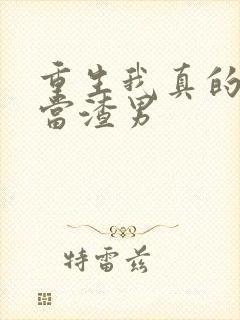 重生我真的
当渣男
特雷兹